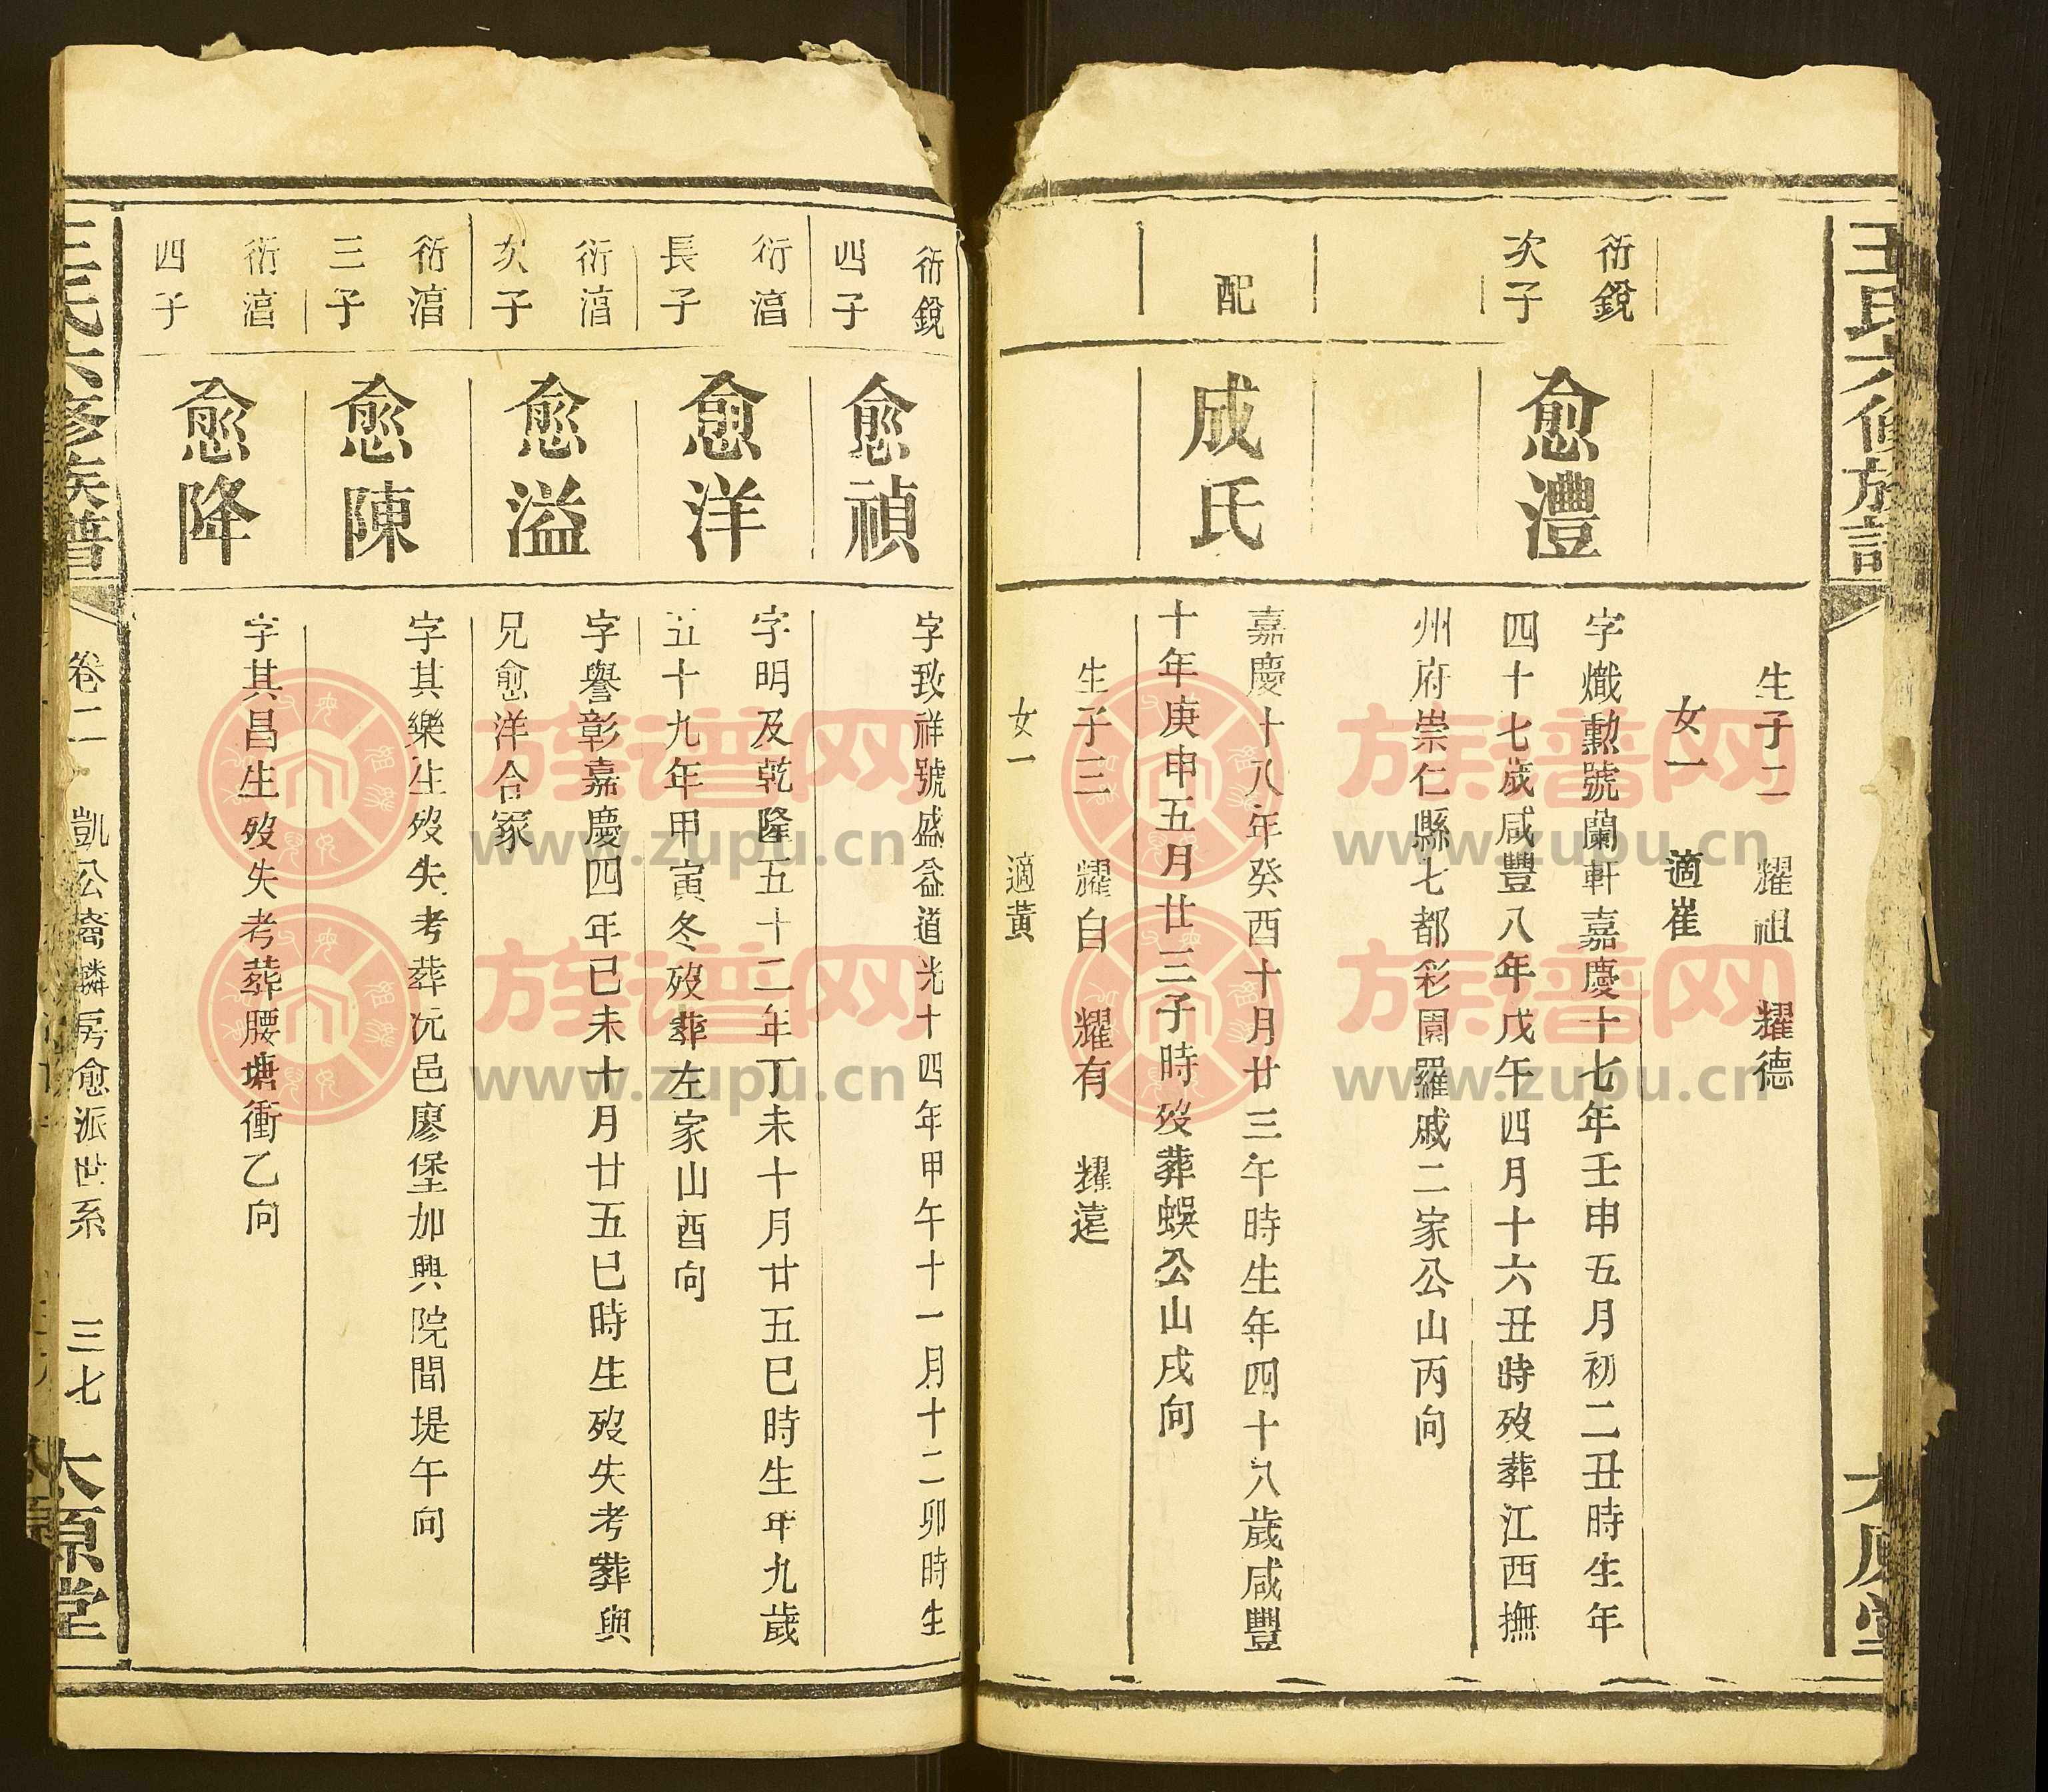 王氏六修族譜
太原堂
生子二 耀祖 耀德
女一 適崔
衍銳
次子
愈澧
字熾勳號蘭軒嘉慶十七年壬申五月初二丑時生年
四十七歲咸豐八年戊午四月十六丑時歿葬江西撫
州府崇仁縣七都彩園羅戚二家公山丙向
配
成氏
嘉慶十八年癸酉十月廿三午時生年四十八歲咸豐
十年庚申五月廿三子時歿葬蜈公山戌向
生子三 耀自 耀有 耀遠
女一 適黃
衍銳
四子
愈禎
字致祥號盛益道光十四年甲午十一月十二卯時生
衍濱
長子
愈洋
字明及乾隆五十二年丁未十月廿五巳時生年九歲
五十九年甲寅冬歿葬左家山酉向
次子
愈溢
字譽彰嘉慶四年己未十月廿五巳時生歿失考葬與
兄愈洋合冢
三子
愈陳
字其樂生歿失考葬沅邑廖堡加興院間堤午向
四子
愈降
字其昌生歿失考葬腰塘衝乙向
王氏六修族譜
卷二 凱公 房愈派世系 三七
太原堂
族谱网
www.zupu.cn
族谱网
www.zupu.cn
族谱网
www.zupu.cn
族谱网
www.zupu.cn